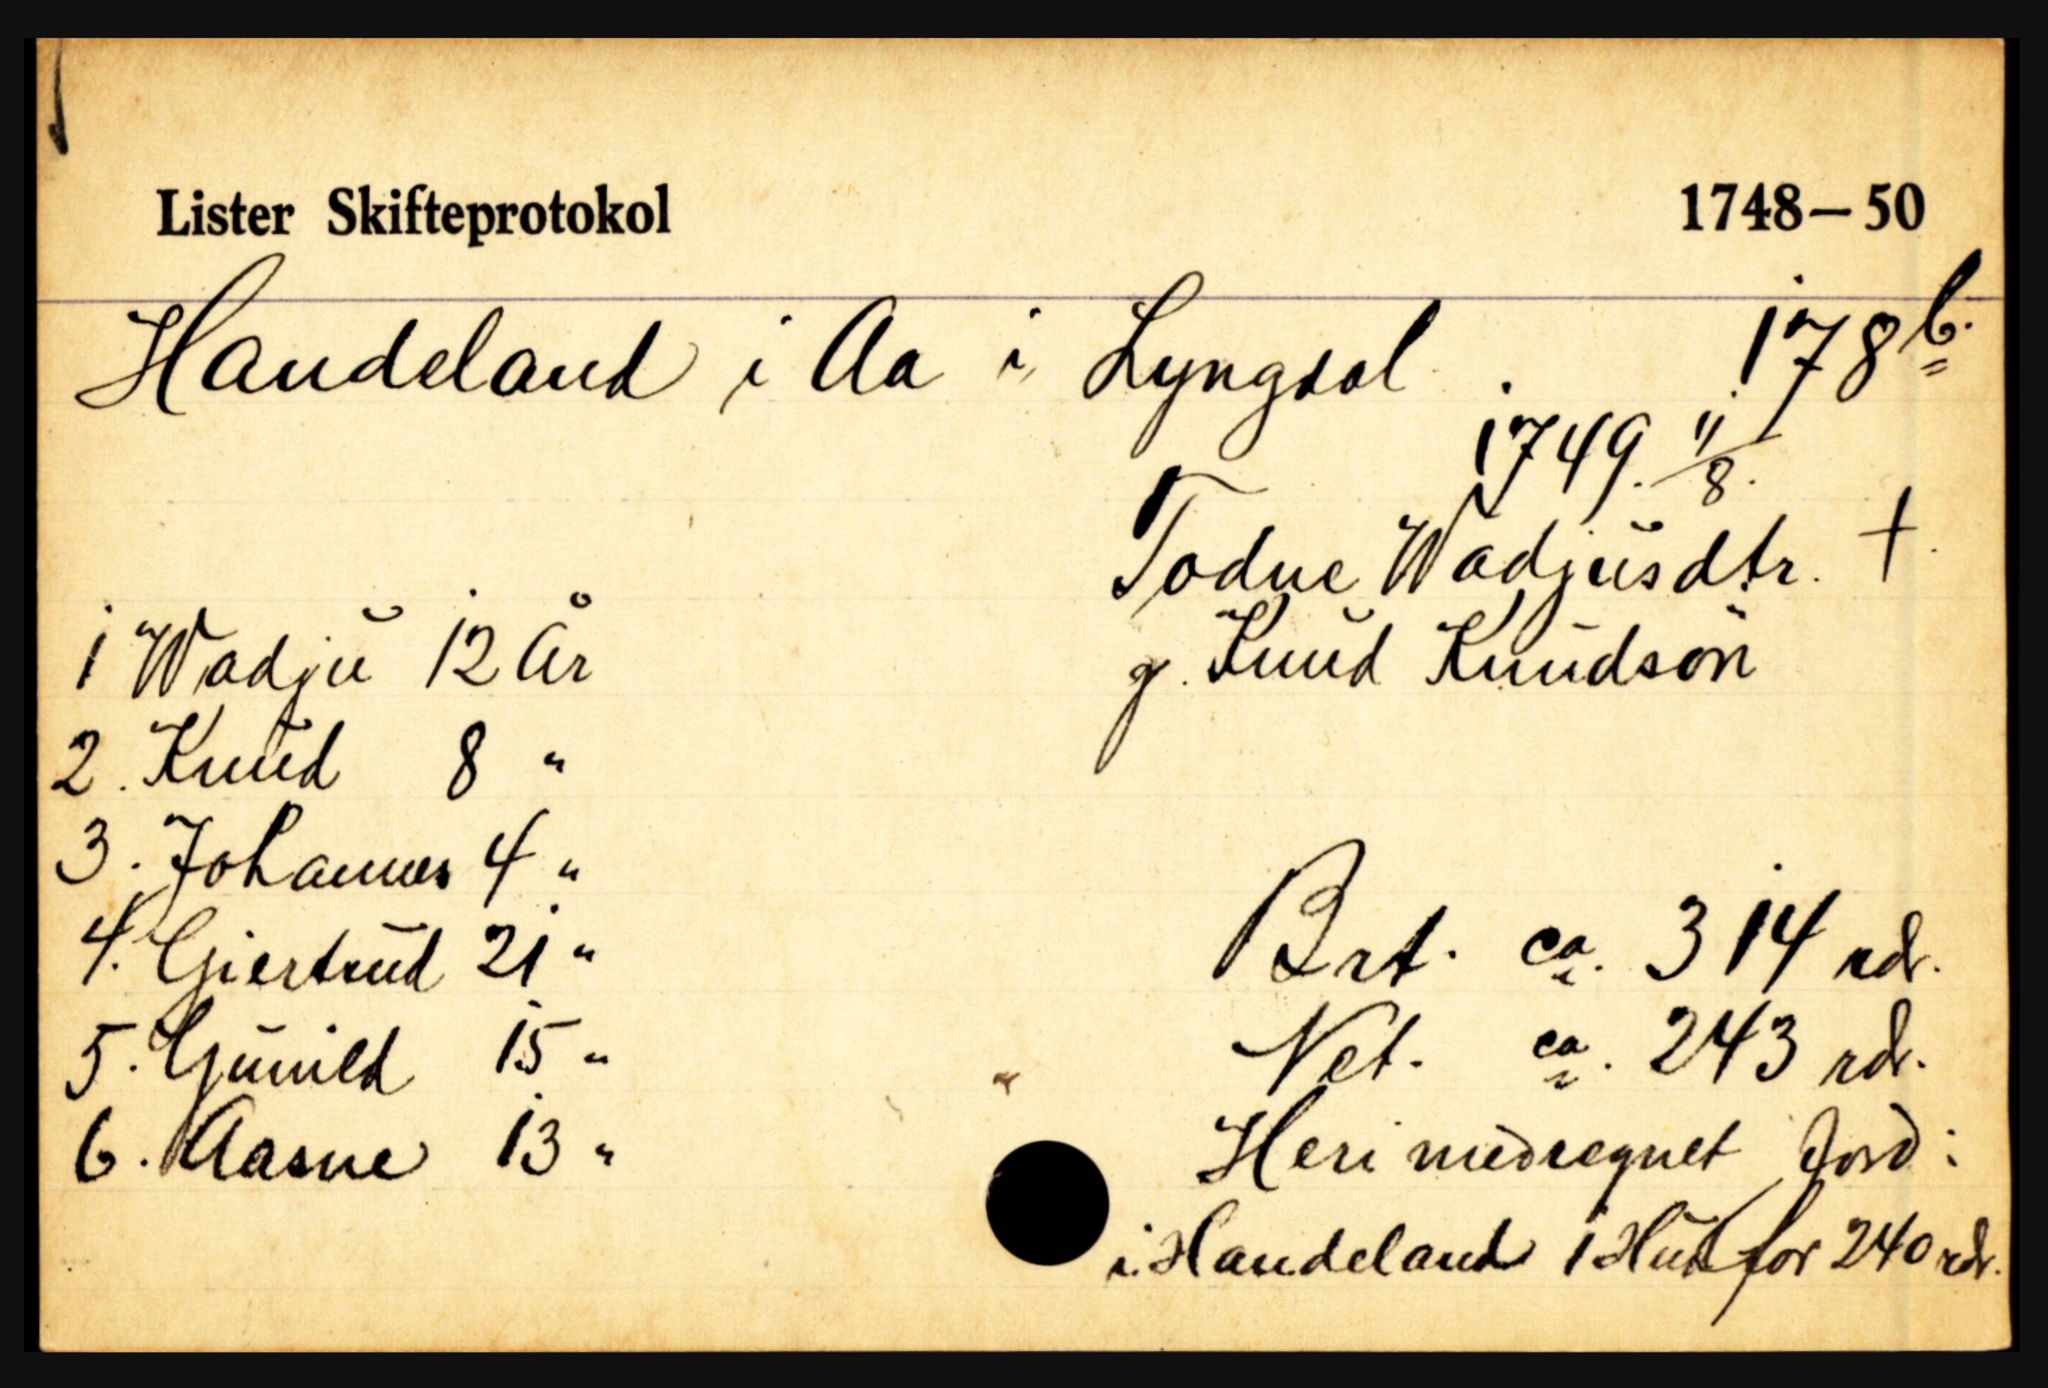 Lister Skifteprotokol 1748–50
Handeland i Aa i Lyngdal. 178 b.
1749. 11/8.
Todne Wadjusdtr. +
g. Knud Knudsøn
1 Wadju 12 År
2. Knud 8 "
3. Johannes 4 "
4. Gjertrud 21 "
5. Gunild 15 "
6. Aasne 13 "
Brt. ca. 314 rdr.
Net. ca. 243 rdr.
Heri medregnet Jord:
i Handeland 1 Hud for 240 rdr.